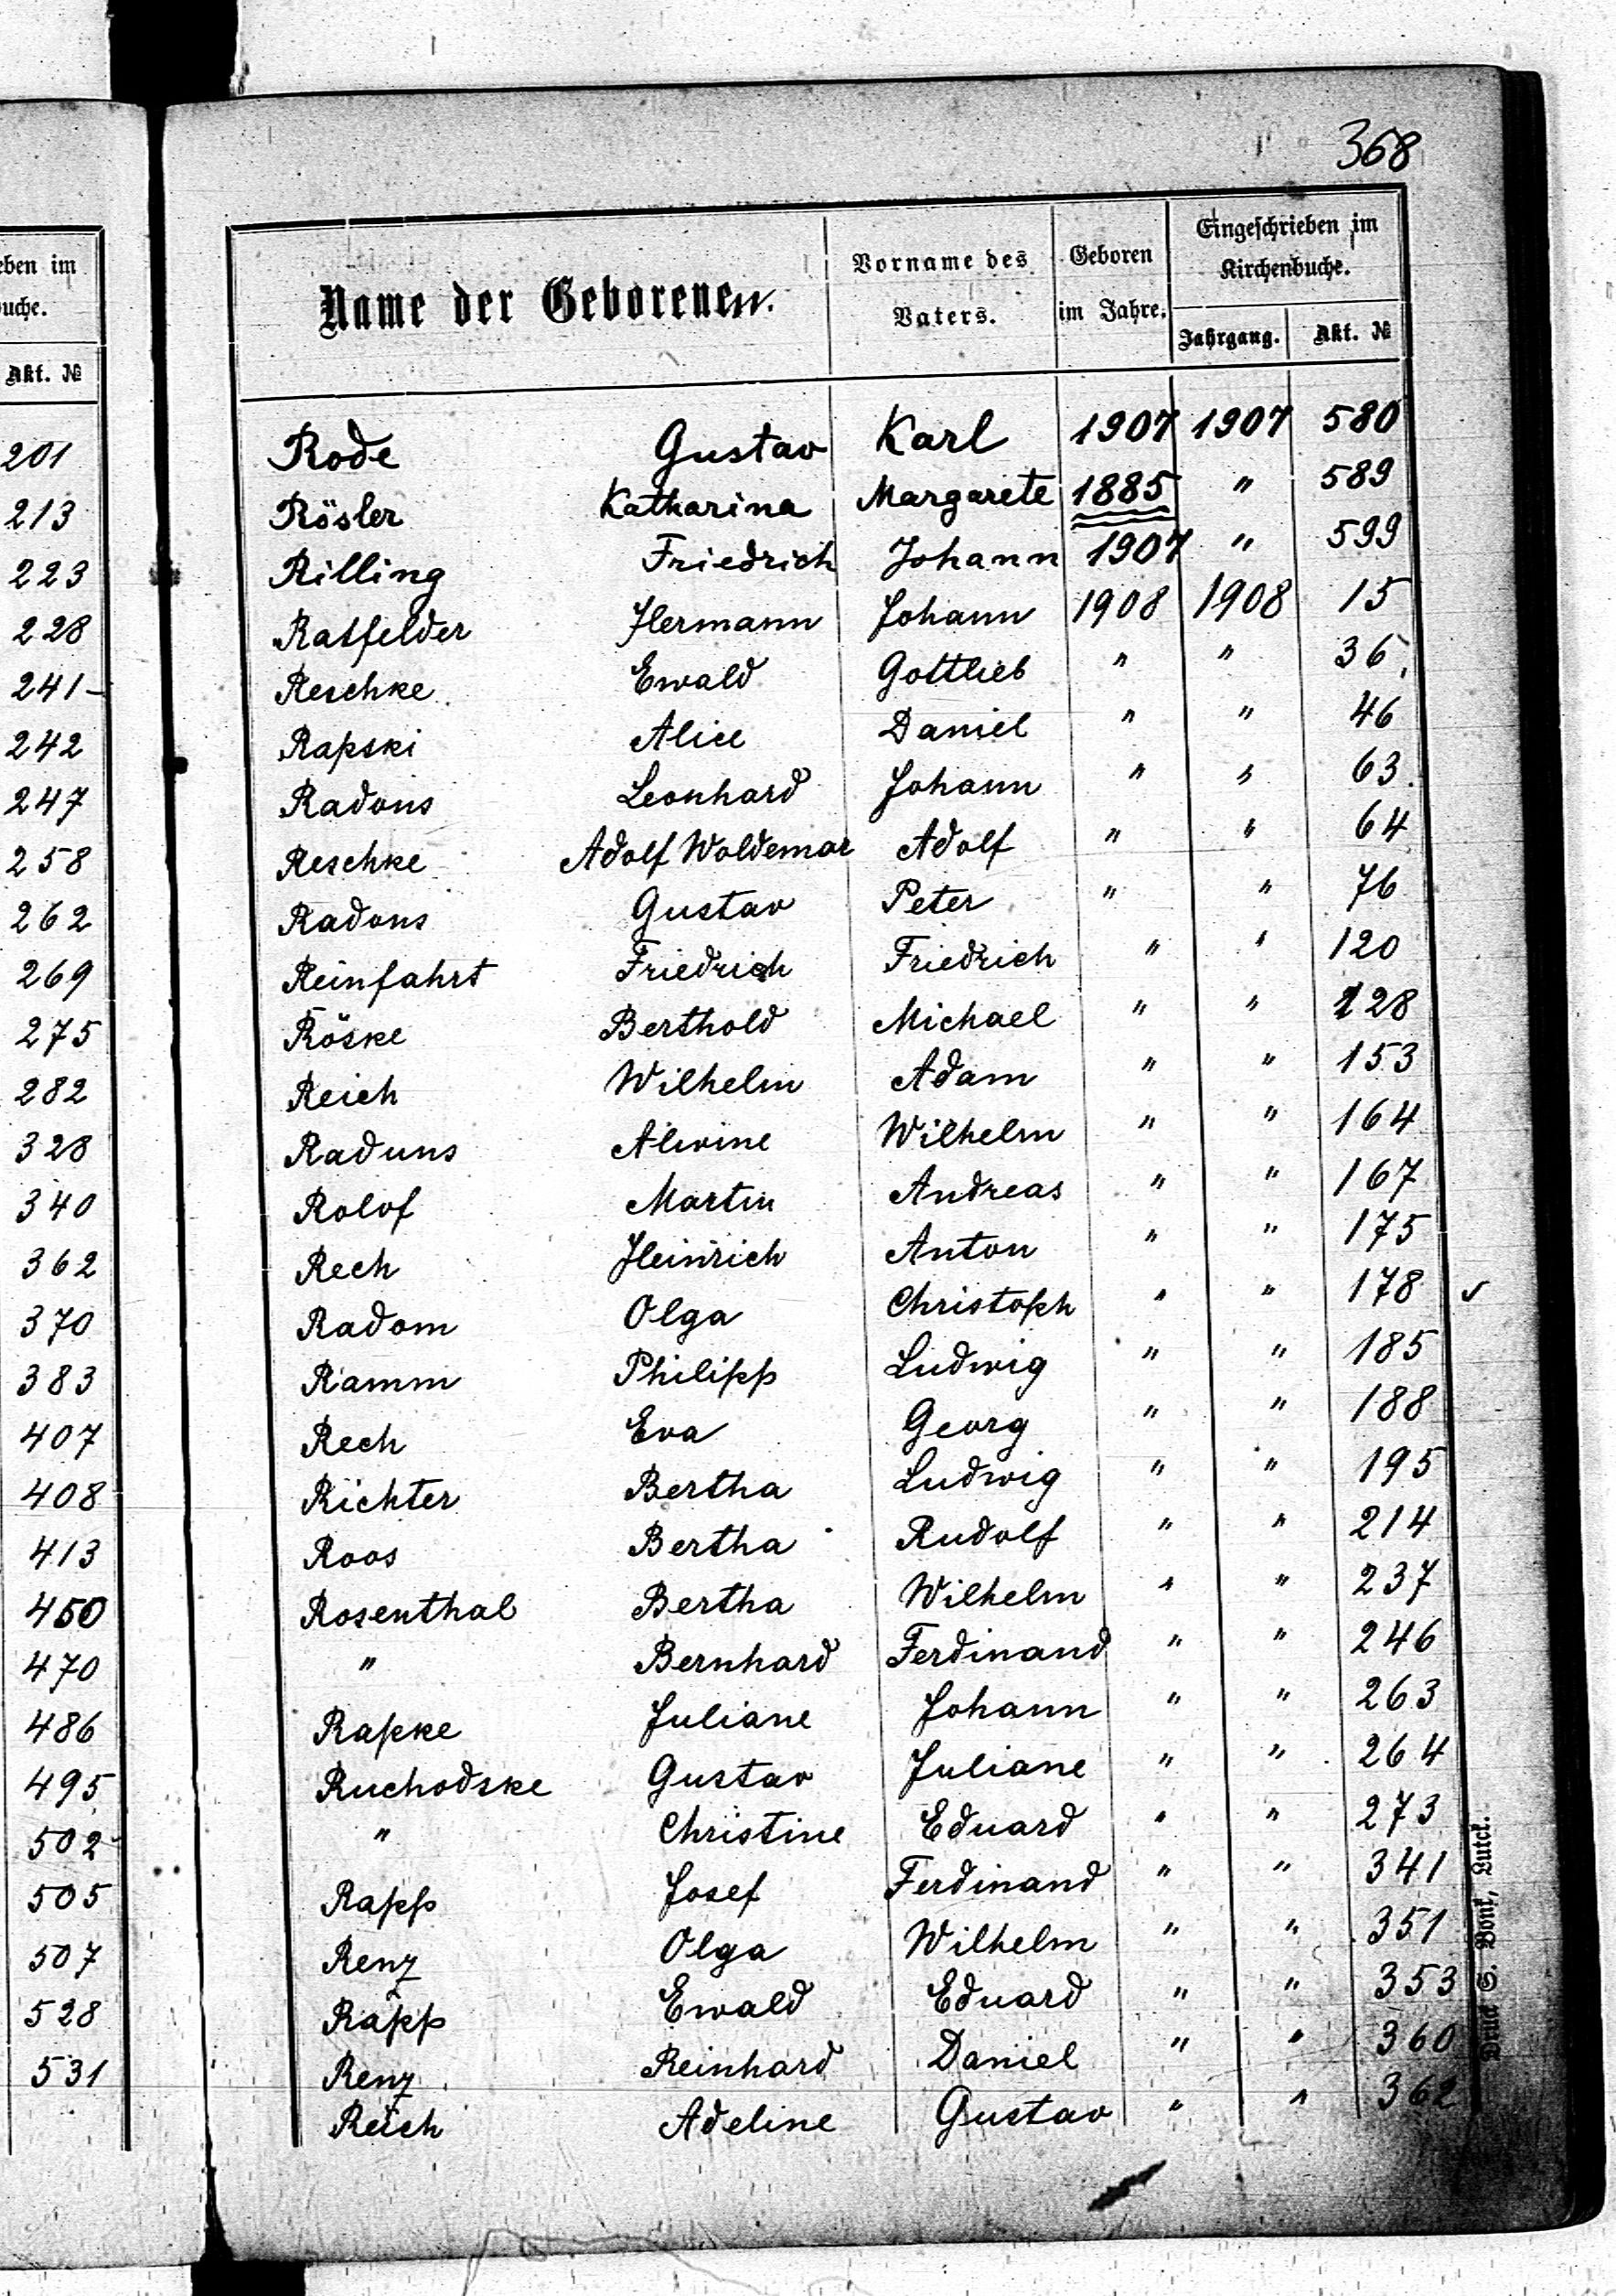 368
eben im
uche.
Akt. №
201
213
223
228
241-
242
247
258
262
269
275
282
328
340
362
370
383
407
408
413
450
470
486
495
502
505
507
528
531
Name der Geborenen.
Vorname des Vaters.
Geboren im Jahre.
Eingeschrieben im Kirchenbuche.
Jahrgang. Akt. №
Rode Gustav Karl 1907 1907 580
Rösler Katharina Margarete 1885 " 589
Rilling Friedrich Johann 1907 " 599
Ratfelder Hermann Johann 1908 1908 15
Reschke Ewald Gottlieb " " 36
Rapski Alice Daniel " " 46
Radons Leonhard Johann " " 63
Reschke Adolf Woldemar Adolf " " 64
Radons Gustav Peter " " 76
Reinfahrt Friedrich Friedrich " " 120
Röske Berthold Michael " " 128
Reich Wilhelm Adam " " 153
Raduns Alwine Wilhelm " " 164
Rolof Martin Andreas " " 167
Rech Heinrich Anton " " 175
Radom Olga Christoph " " 178 ✓
Ramm Philipp Ludwig " " 185
Rech Eva Georg " " 188
Richter Bertha Ludwig " " 195
Roos Bertha Rudolf " " 214
Rosenthal Bertha Wilhelm " " 237
" Bernhard Ferdinand " " 246
Rapke Juliane Johann " " 263
Ruchodske Gustav Juliane " " 264
" Christine Eduard " " 273
Rapp Josef Ferdinand " " 341
Renz Olga Wilhelm " " 351
Rapp Ewald Eduard " " 353
Renz Reinhard Daniel " " 360
Reich Adeline Gustav " " 362
Druck S. Bonk, Lutck.